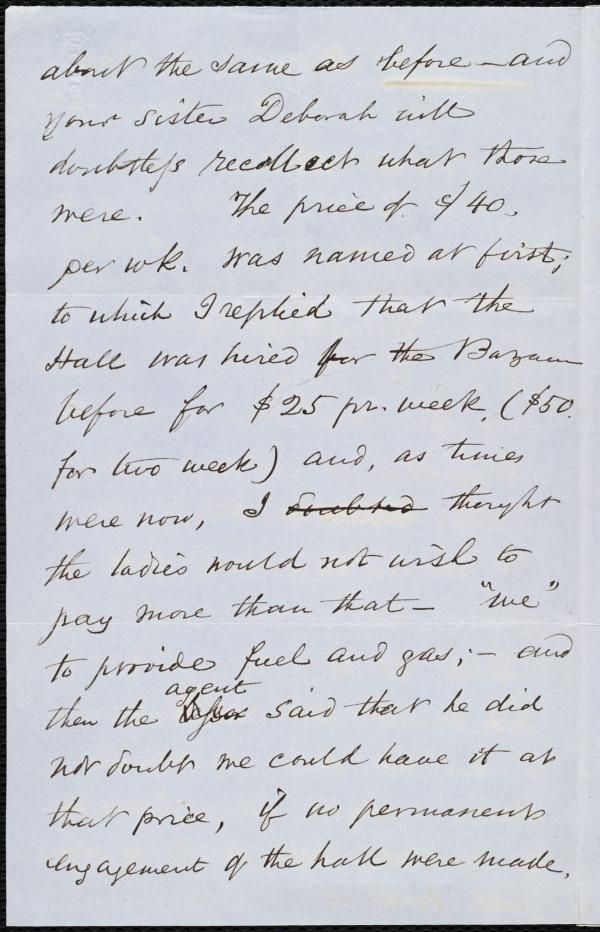 about the same as before – and
your sister Deborah will
doubtless recollect what those
were. The price of $40,
per wk. was named at first;
to which I replied that the
Hall was hired for the Bazaar
before for $25 pr. week, ($50.
for two week) and, as times
were now, I doubted thought
the ladies would not wish to
pay more than that – "we"
to provide fuel and gas; – and
agent
then the said that he did
not doubt we could have it at
that price, if no permanent
engagement of the hall were made.